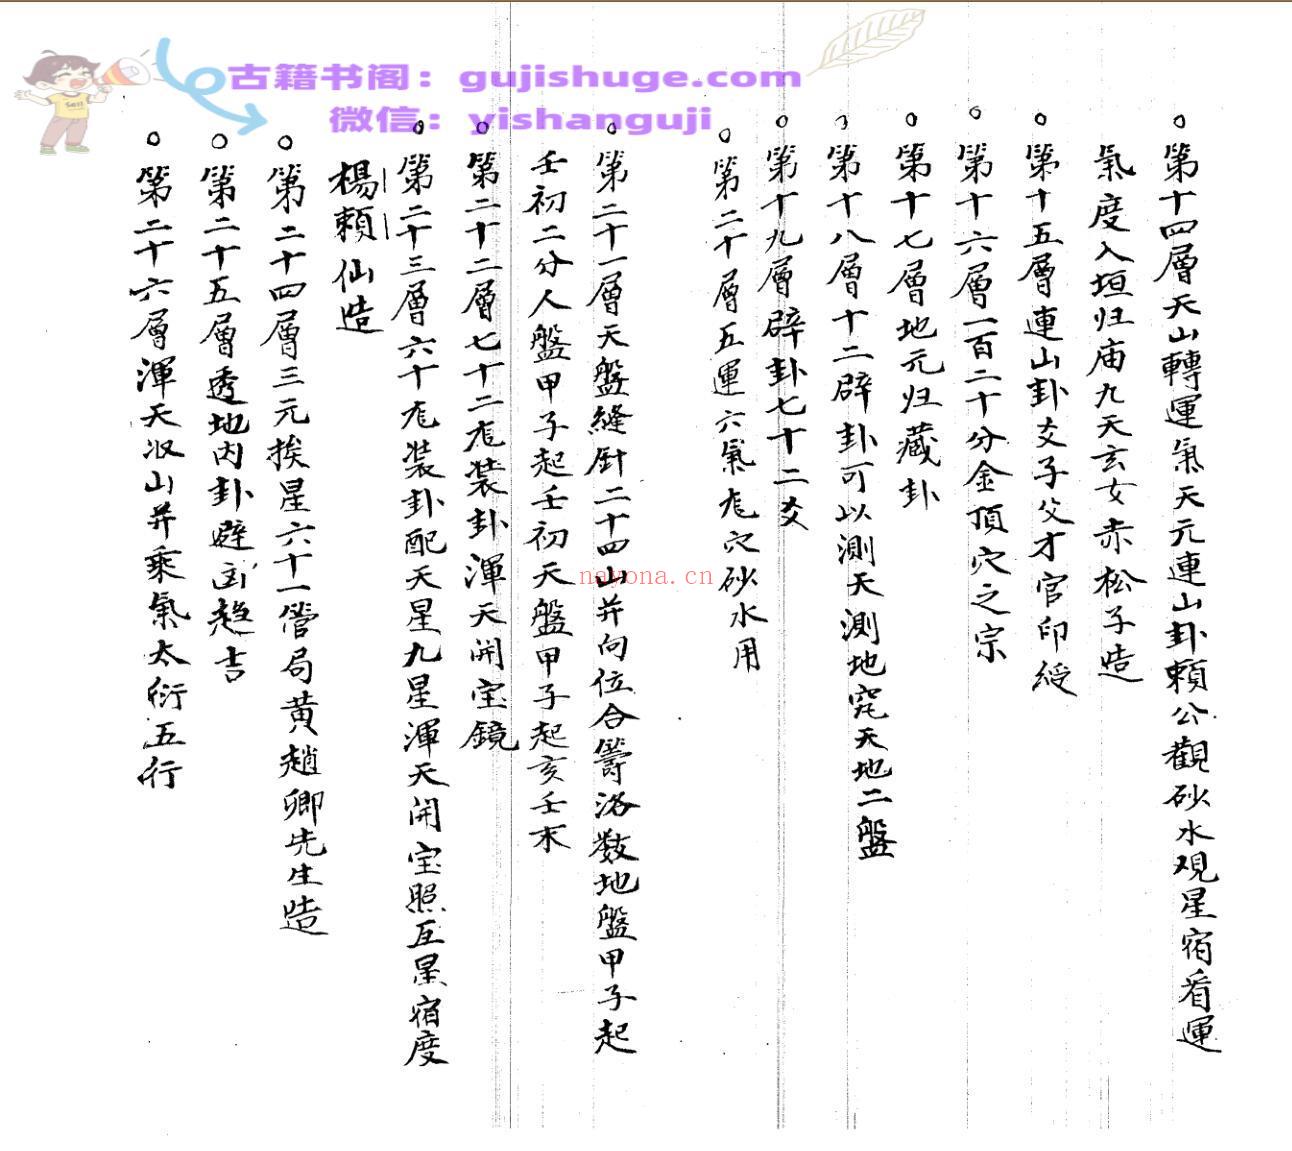 古籍书阁：gujishuge.com
微信：yishanguji
第十四層天山轉運氣天元連山卦賴公觀砂水观星宿看運
氣度入垣归庙九天玄女赤松子造
第十五層連山卦爻子父才官印綬
第十六層一百二十分金頂穴之宗
第十七層地元归藏卦
第十八層十二辟卦可以測天測地究天地二盤
第十九層辟卦七十二爻
第二十層五運六氣穴砂水用
第二十一層天盤縫針二十四山并向位合籌洛数地盤甲子起
壬初二分人盤甲子起壬初天盤甲子起亥壬末
第二十二層七十二龙装卦渾天開宝鏡
第二十三層六十龙装卦配天星九星渾天開宝照五星宿度
楊賴仙造
第二十四層三元挨星六十一管局黄趙卿先生造
第二十五層透地内卦避凶趋吉
第二十六層渾天収山并乘氣太衍五行
nayona.cn